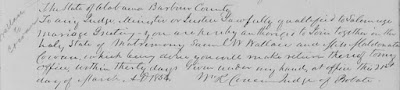 The State of Alabama Barbour County
To any Judge Minister or Justice Lawfully qualified to Solemnize
Marriage Greeting, you are hereby authorized to Join together in the
holy State of Matrimony L W Wallace and Miss
Cowan, which being done you will make return thereof to my
office within thirty days Given under my hand, at office this
day of March A D
W R Cowan Judge of Probate
Wallace
to